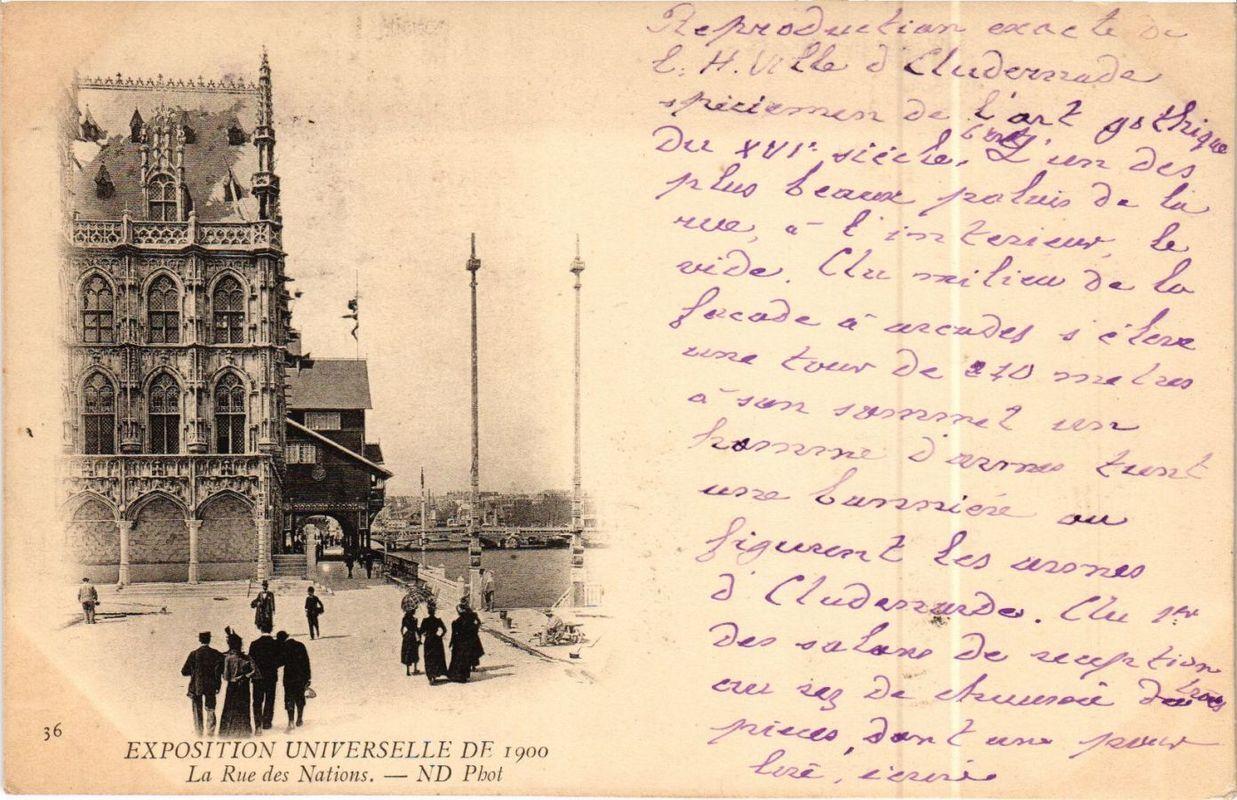 Reproduction exacte de
l'H. Ville d'Audernade
spécimen de l'art gothique
du XVIe siècle, L'un des
plus beaux palais de la
rue, à l'interieur, le
vide. Au milieu de la
façade à arcades s'élève
une tour de 210 metres
à son sommet un
homme d'armes tient
une bannière ou
figurent les armes
d'Audenarde. Au 1er
des salons de reception
au rez de chaussée
pieces, dont une pour
36
EXPOSITION UNIVERSELLE DE 1900
La Rue des Nations. — ND Phot